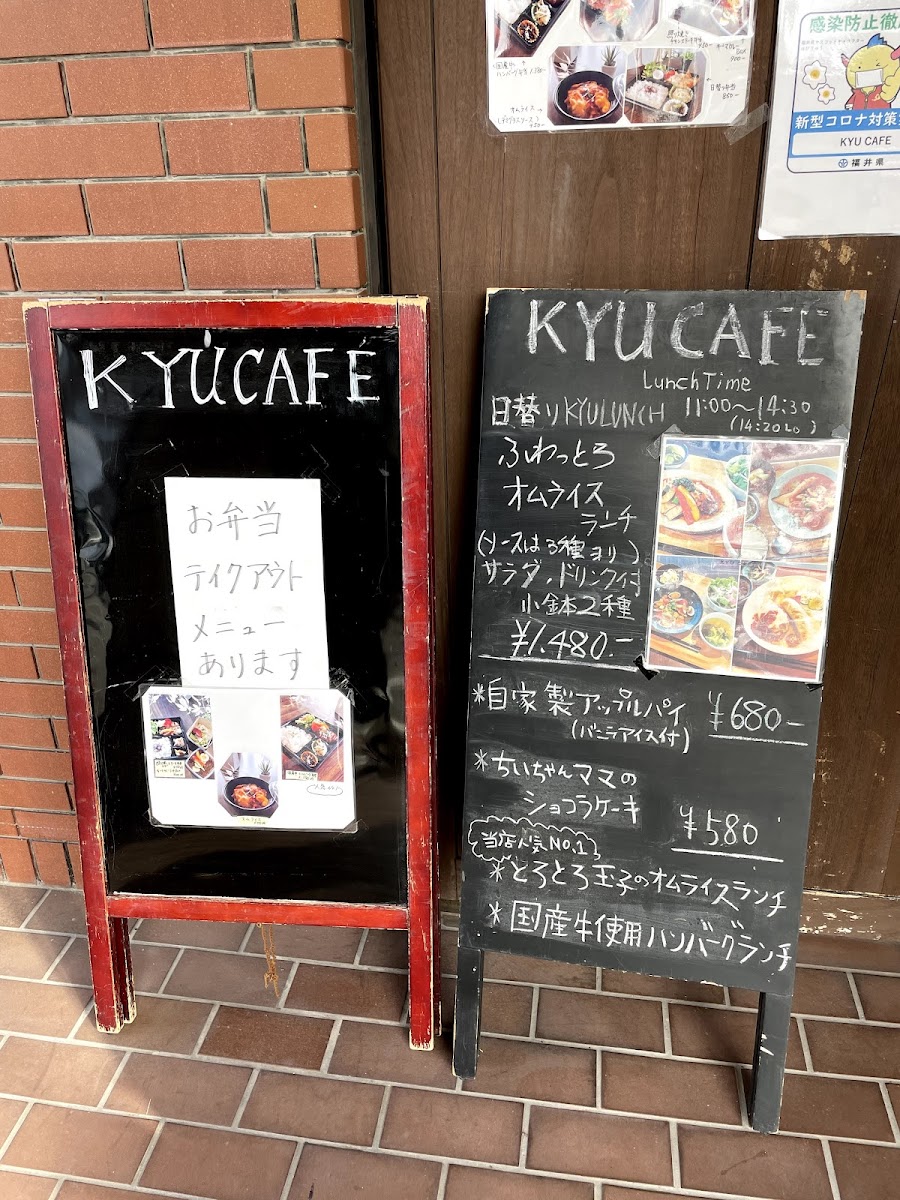 国産牛
ハンバーグ弁当
オムライス
日替り弁当
850-
感染防止徹底
新型コロナ対策
KYU CAFE
福井県
KYUCAFE
お弁当
テイクアウト
メニュー
あります
KYUCAFE
Lunch Time
日替りKYULUNCH 11:00〜14:30
(14:20LO)
ふわっとろ
オムライス
ランチ
(ソースは3種ヨリ)
サラダ、ドリンク付
小鉢2種
¥1.480.-
*自家製アップルパイ ¥680-
(バニラアイス付)
*ちいちゃんママの
ショコラケーキ
¥580
当店人気NO.1
*とろとろ玉子のオムライスランチ
*国産牛使用ハンバーグランチ